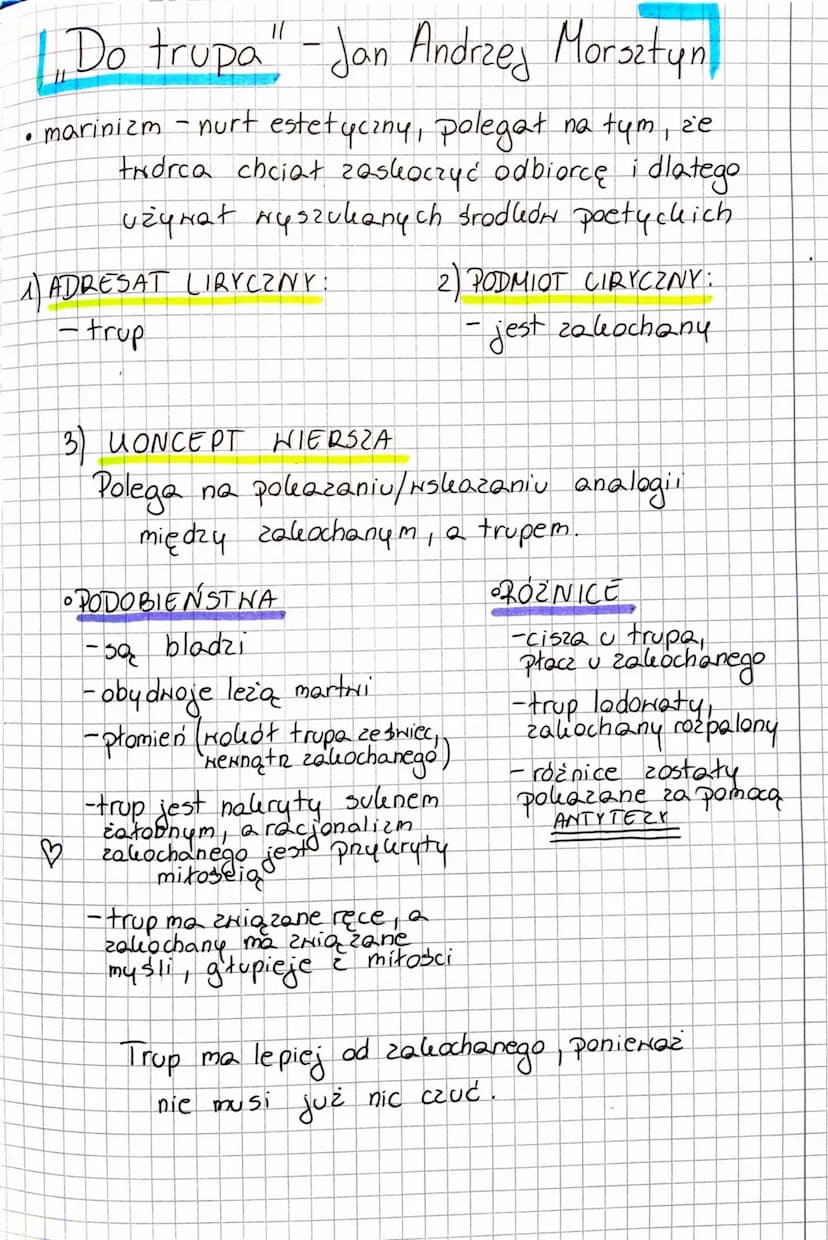 „Do trupa" - Jan Andrzej Morsztyn
• marinizm - nurt estetyczny, polegał na tym, że
twórca chciał zaskoczyć odbiorcę i dlatego
używał wyszukanych środków poetyckich
1) ADRESAT LIRYCZNY:
- trup
2) PODMIOT LIRYCZNY:
- jest zakochany
3) KONCEPT WIERSZA
Polega na pokazaniu/wskazaniu analogii
między zakochanym, a trupem.
• PODOBIEŃSTWA
- są bladzi
- obydwoje leżą martwi
- płomień (wokół trupa ze świec,
wewnątrz zakochanego)
- trup jest nakryty suknem
żałobnym, a racjonalizm
♡ zakochanego jest przykryty
miłością
- trup ma związane ręce, a
zakochany ma związane
myśli, głupieje z miłości
• RÓŻNICE
- cisza u trupa,
płacz u zakochanego
- trup lodowaty,
zakochany rozpalony
- różnice zostały
pokazane za pomocą
ANTYTEZY
Trup ma lepiej od zakochanego, ponieważ
nie musi już nic czuć.